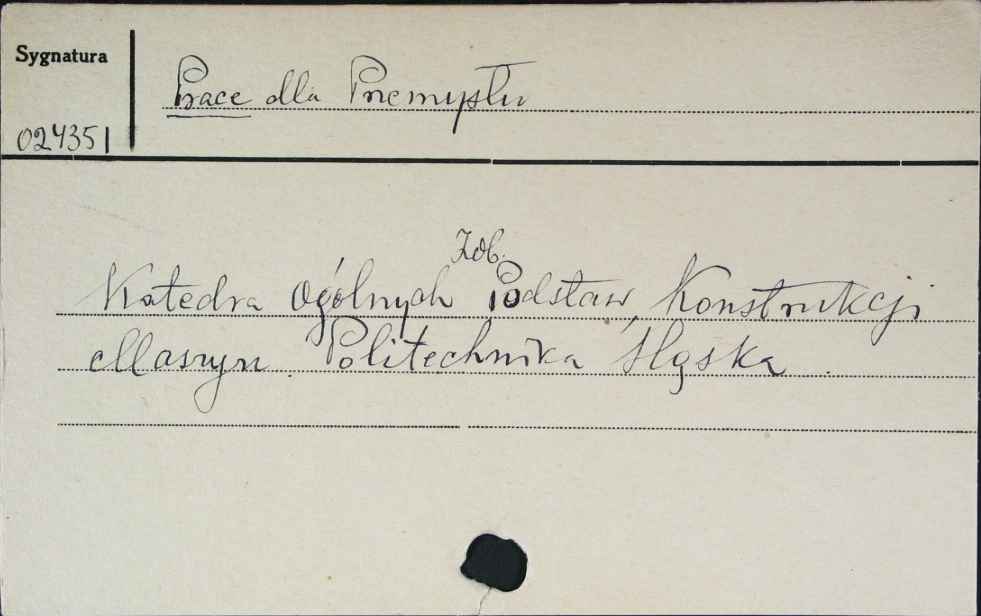 Sygnatura
Prace dla Przemysłu
024351
Zob.
Katedra Ogólnych Podstaw Konstrukcji
Maszyn. Politechnika Śląska.